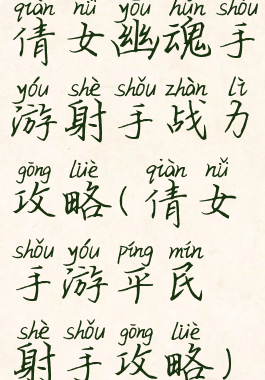 qiàn nǚ yōu hún shǒu
倩女幽魂手
yóu shè shǒu zhàn lì
游射手战力
gōng lüè qiàn nǚ
攻略(倩女
shǒu yóu píng mín
手游平民
shè shǒu gōng lüè
射手攻略)